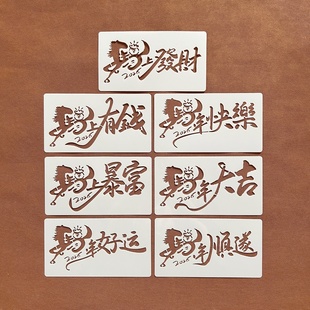 馬上發財
2026
馬上有錢
2026
馬年快樂
2026
馬上暴富
2026
馬年大吉
2026
馬年好运
2026
馬年順遂
2026